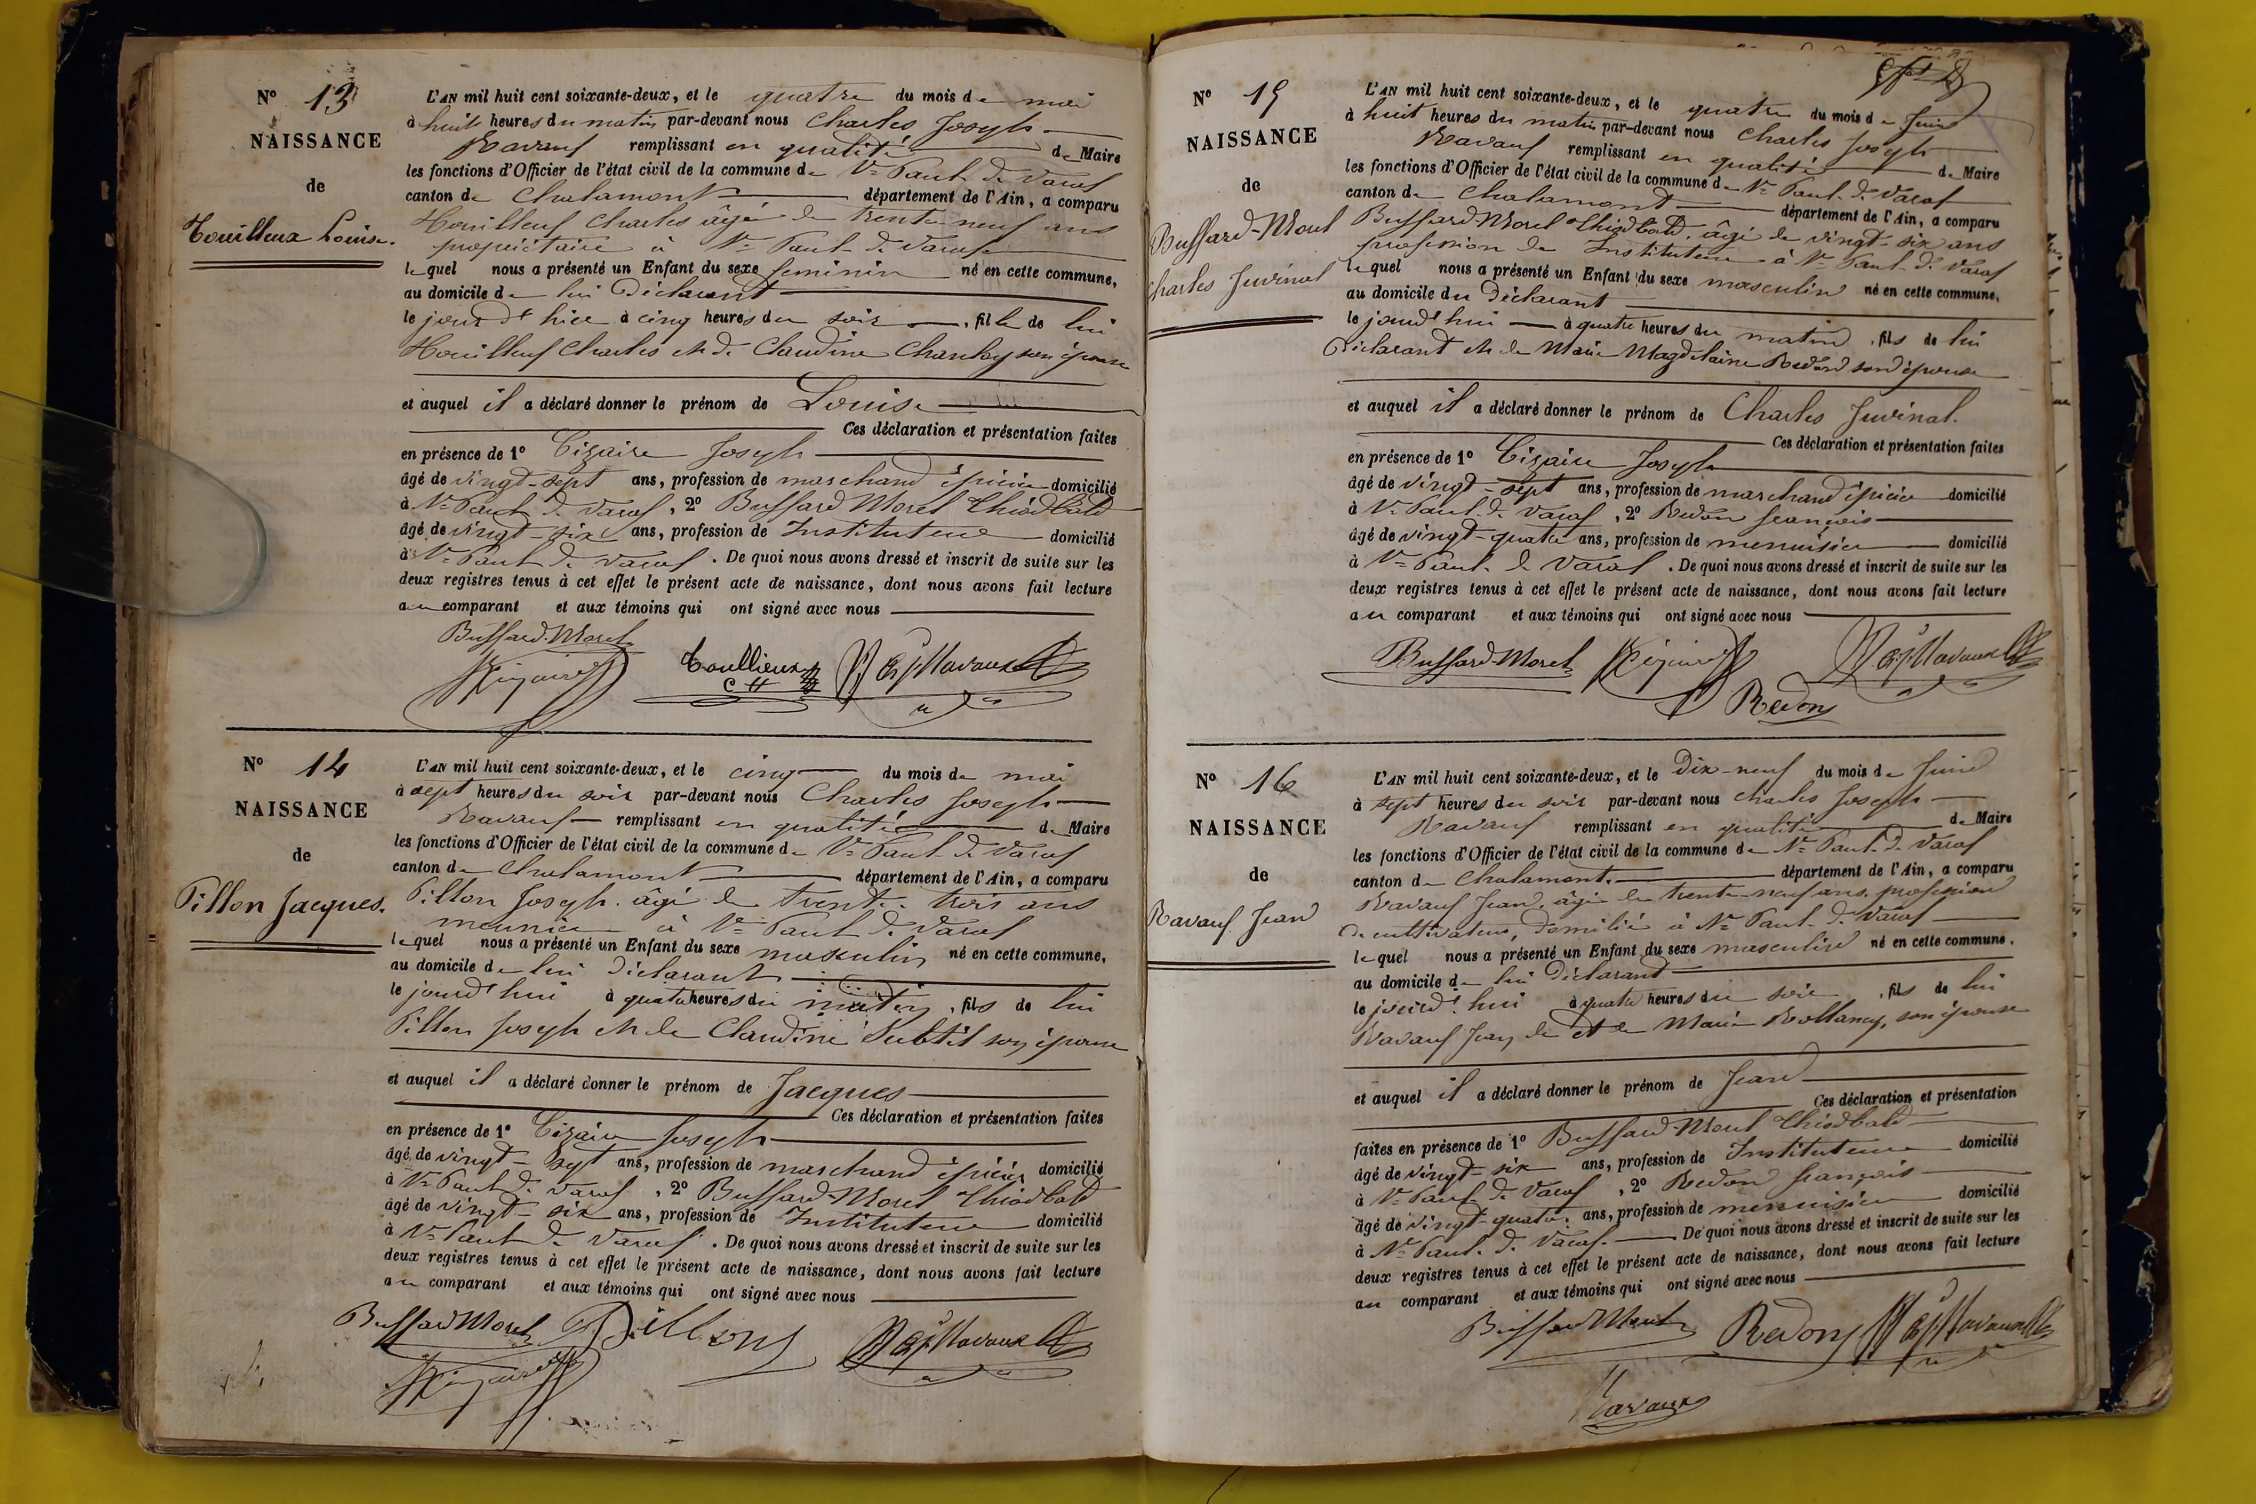 N° 13
NAISSANCE
de
Touilleux Louise.
L'AN mil huit cent soixante-deux, et le quatre du mois de mai
à huit heures du matin par-devant nous Charles Joseph
Ravaux remplissant en qualité de Maire
les fonctions d'Officier de l'état civil de la commune de Vle Paul de Varax
canton de Chalamont département de l'Ain, a comparu
Touilleux Charles âgé de trente neuf ans
propriétaire à Vle Paul de Varax
lequel nous a présenté un Enfant du sexe feminin né en cette commune,
au domicile de lui Déclarant
le jour d'hier à cinq heures du soir, fille de lui
Touilleux Charles et de Claudine son épouse
et auquel il a déclaré donner le prénom de Louise
Ces déclaration et présentation faites
en présence de 1° Tizaire Joseph
âgé de vingt-sept ans, profession de marchand épicier domicilié
à Vle Paul de Varax, 2° Buffard Morel Thiodbald
âgé de vingt-six ans, profession de Instituteur domicilié
à Vle Paul de Varax. De quoi nous avons dressé et inscrit de suite sur les
deux registres tenus à cet effet le présent acte de naissance, dont nous avons fait lecture
au comparant et aux témoins qui ont signé avec nous
Buffard-Morel
Toullieux Ravaux
CH
N° 14
NAISSANCE
de
Pillon Jacques.
L'AN mil huit cent soixante-deux, et le cinq du mois de mai
à sept heures du soir par-devant nous Charles Joseph
Ravaux remplissant en qualité de Maire
les fonctions d'Officier de l'état civil de la commune de Vle Paul de Varax
canton de Chalamont département de l'Ain, a comparu
Pillon Joseph âgé de trente-trois ans
meunier à Vle Paul de Varax
lequel nous a présenté un Enfant du sexe masculin né en cette commune,
au domicile de lui Déclarant
le jourd'hui à quatre heures du matin, fils de lui
Pillon Joseph et de Claudine Subtil son épouse
et auquel il a déclaré donner le prénom de Jacques
Ces déclaration et présentation faites
en présence de 1° Tizaire Joseph
âgé de vingt-sept ans, profession de marchand épicier domicilié
à Vle Paul de Varax, 2° Buffard-Morel Thiodbald
âgé de vingt-six ans, profession de Instituteur domicilié
à Vle Paul de Varax. De quoi nous avons dressé et inscrit de suite sur les
deux registres tenus à cet effet le présent acte de naissance, dont nous avons fait lecture
au comparant et aux témoins qui ont signé avec nous
Buffard Morel Pillon Ravaux
N° 15
NAISSANCE
de
Buffard-Morel
Charles Juvinal
L'AN mil huit cent soixante-deux, et le quatre du mois de Juin
à huit heures du matin par-devant nous Charles Joseph
Ravaux remplissant en qualité de Maire
les fonctions d'Officier de l'état civil de la commune de Vle Paul de Varax
canton de Chalamont département de l'Ain, a comparu
Buffard Morel Thiodbald, âgé de vingt-six ans
profession de Instituteur à Vle Paul de Varax
lequel nous a présenté un Enfant du sexe masculin né en cette commune,
au domicile du Déclarant
le jourd'hui à quatre heures du matin, fils de lui
Déclarant et de Marie Magdelaine Redon son épouse
et auquel il a déclaré donner le prénom de Charles Juvinal.
Ces déclaration et présentation faites
en présence de 1° Tizaire Joseph
âgé de vingt-sept ans, profession de marchand épicier domicilié
à Vle Paul de Varax, 2° Redon françois
âgé de vingt-quatre ans, profession de menuisier domicilié
à Vle Paul de Varax. De quoi nous avons dressé et inscrit de suite sur les
deux registres tenus à cet effet le présent acte de naissance, dont nous avons fait lecture
au comparant et aux témoins qui ont signé avec nous
Buffard-Morel Ravaux
Redon
N° 16
NAISSANCE
de
Ravaux Jean
L'AN mil huit cent soixante-deux, et le Dix-neuf du mois de Juin
à sept heures du soir par-devant nous Charles Joseph
Ravaux remplissant en qualité de Maire
les fonctions d'Officier de l'état civil de la commune de Vle Paul de Varax
canton de Chalamont. département de l'Ain, a comparu
Ravaux Jean, âgé de trente-neuf ans, profession
de cultivateur, domicilié à Vle Paul de Varax
lequel nous a présenté un Enfant du sexe masculin né en cette commune,
au domicile de lui Déclarant
le jourd'hui à quatre heures du soir, fils de lui
Ravaux Jean de et de Marie son épouse
et auquel il a déclaré donner le prénom de Jean
Ces déclaration et présentation
faites en présence de 1° Buffard Morel Thiodbald
âgé de vingt-six ans, profession de Instituteur domicilié
à Vle Paul de Varax, 2° Redon françois
âgé de vingt-quatre ans, profession de menuisier domicilié
à Vle Paul de Varax. De quoi nous avons dressé et inscrit de suite sur les
deux registres tenus à cet effet le présent acte de naissance, dont nous avons fait lecture
au comparant et aux témoins qui ont signé avec nous
Buffard Morel Redon Ravaux
Ravaux